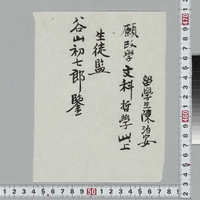 留學生陳治安
願改學文科哲學此上
生徒監
谷山初七郎鑒
50